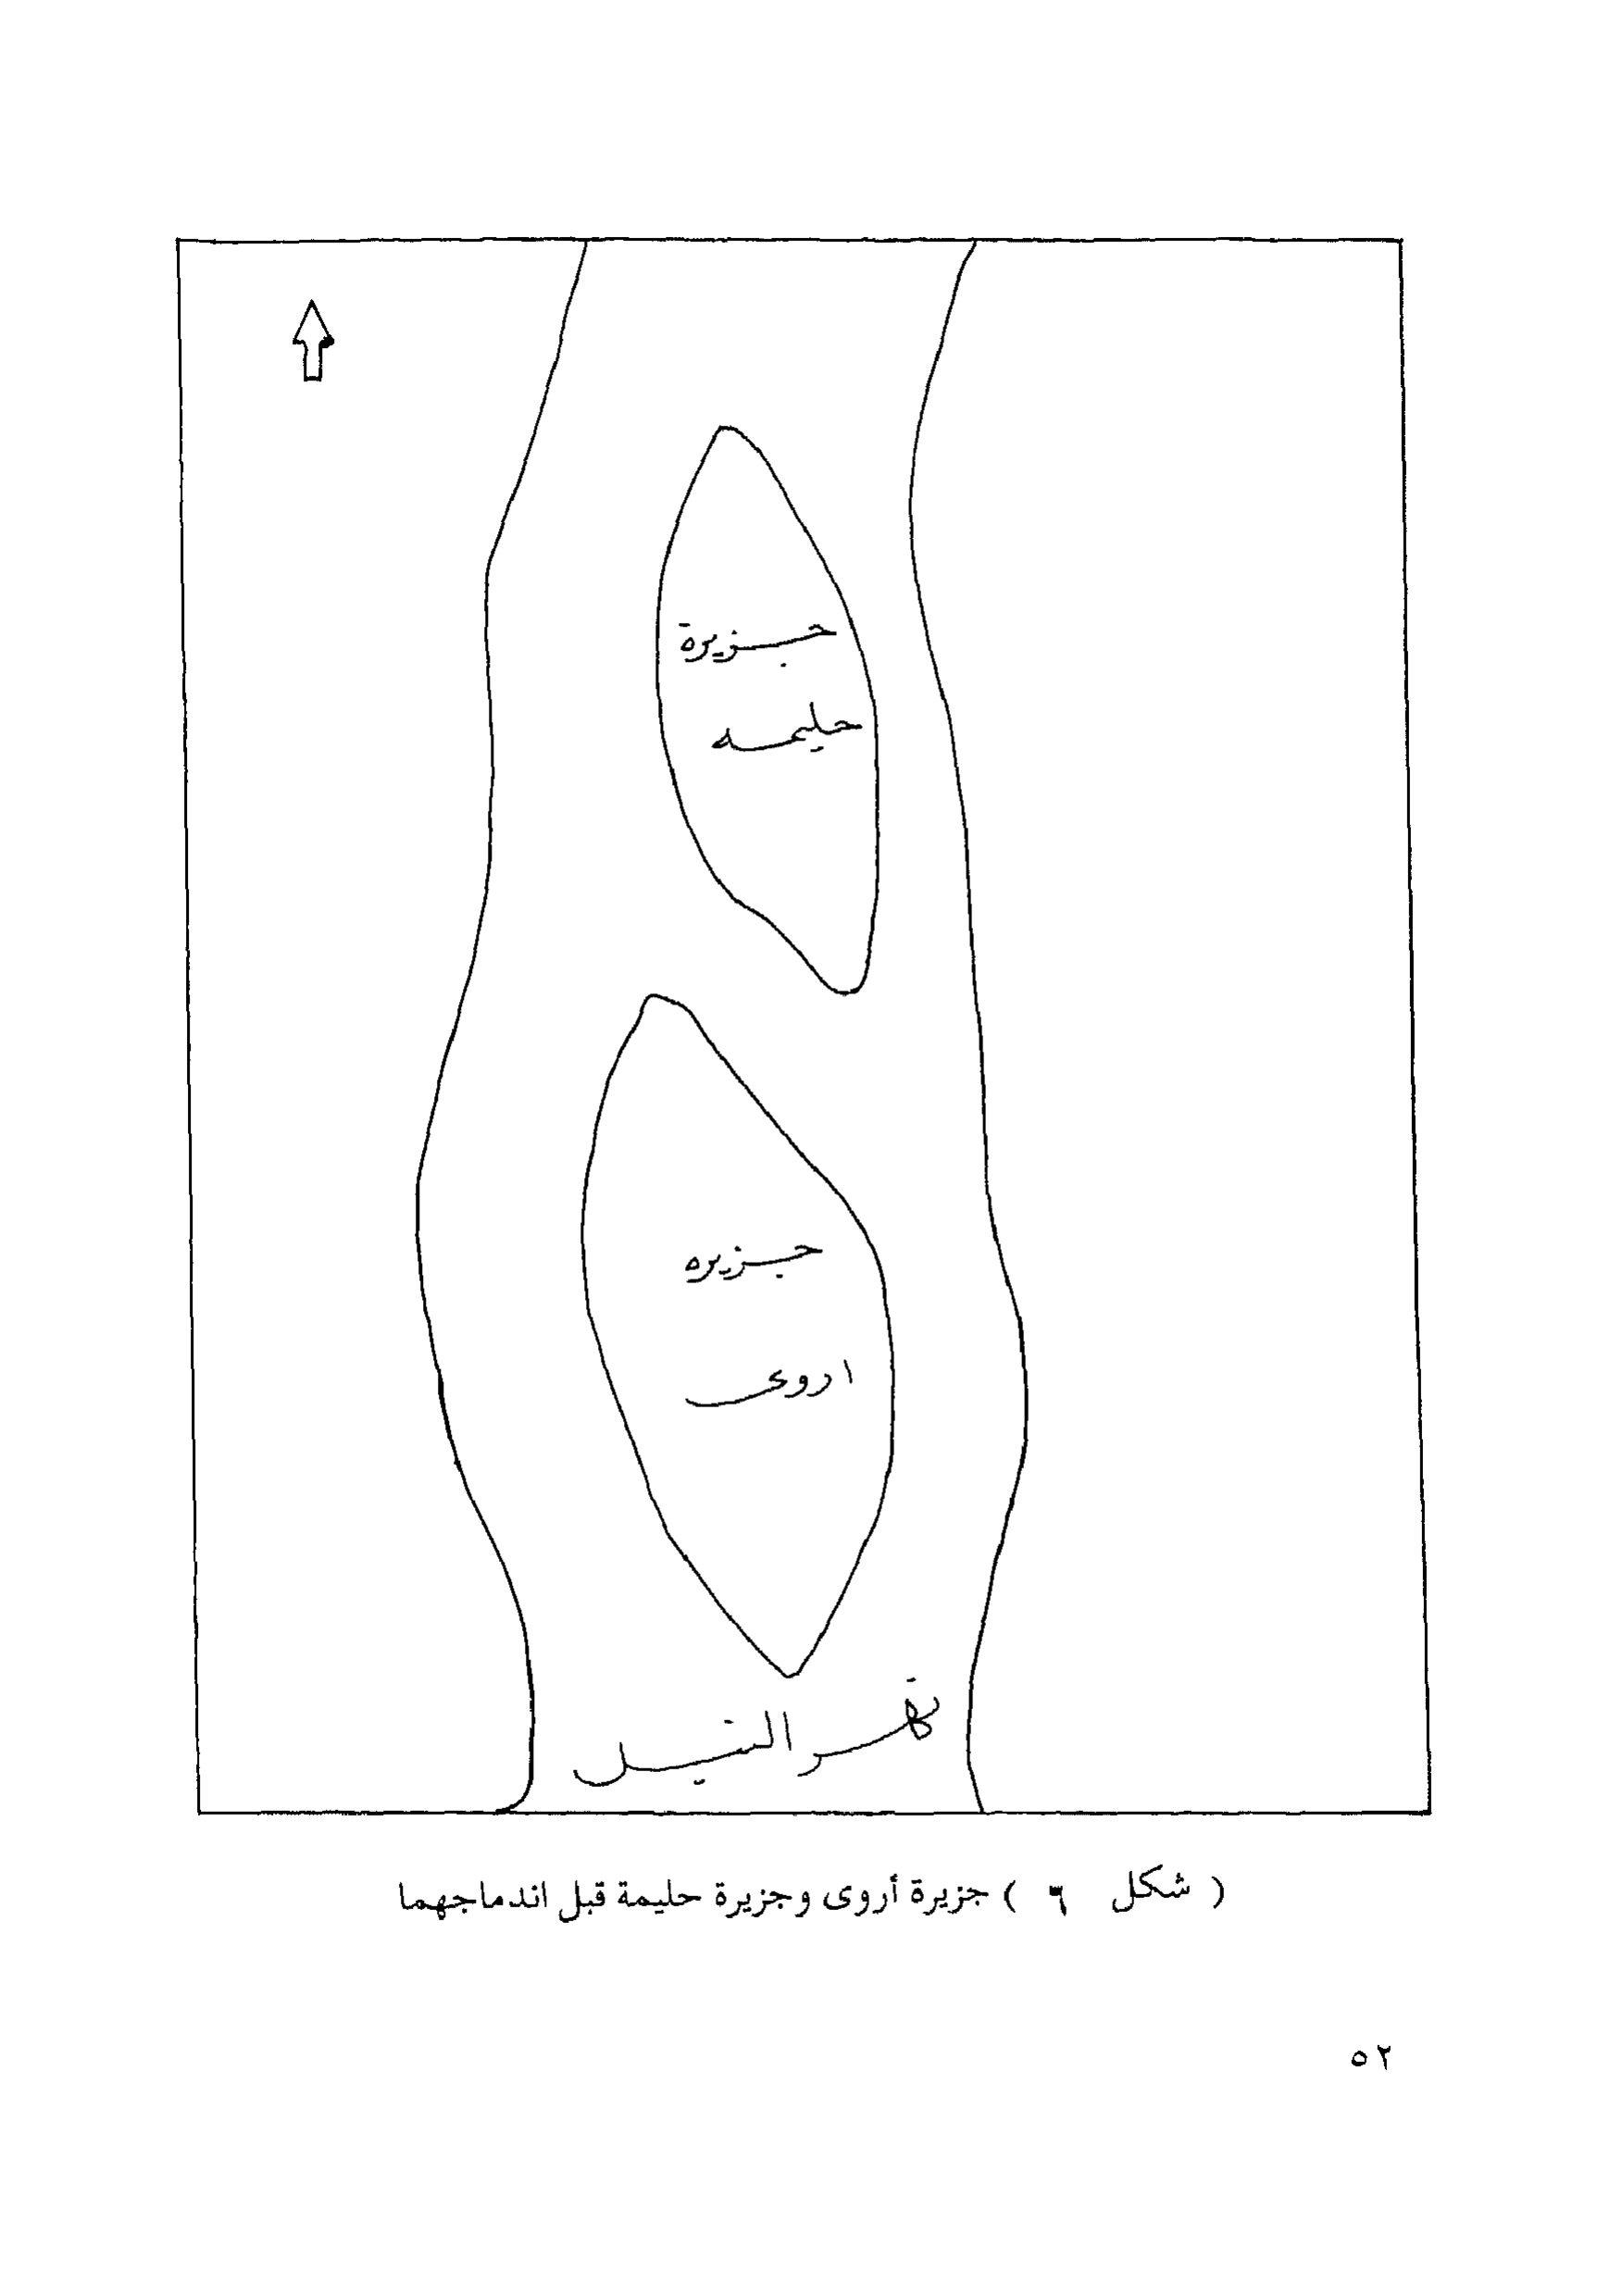 جزيرة
حليمه
جزيره
اروى
نهر النيل
( شكل ٦ ) جزيرة أروى وجزيرة حليمة قبل اندماجهما
٥٢